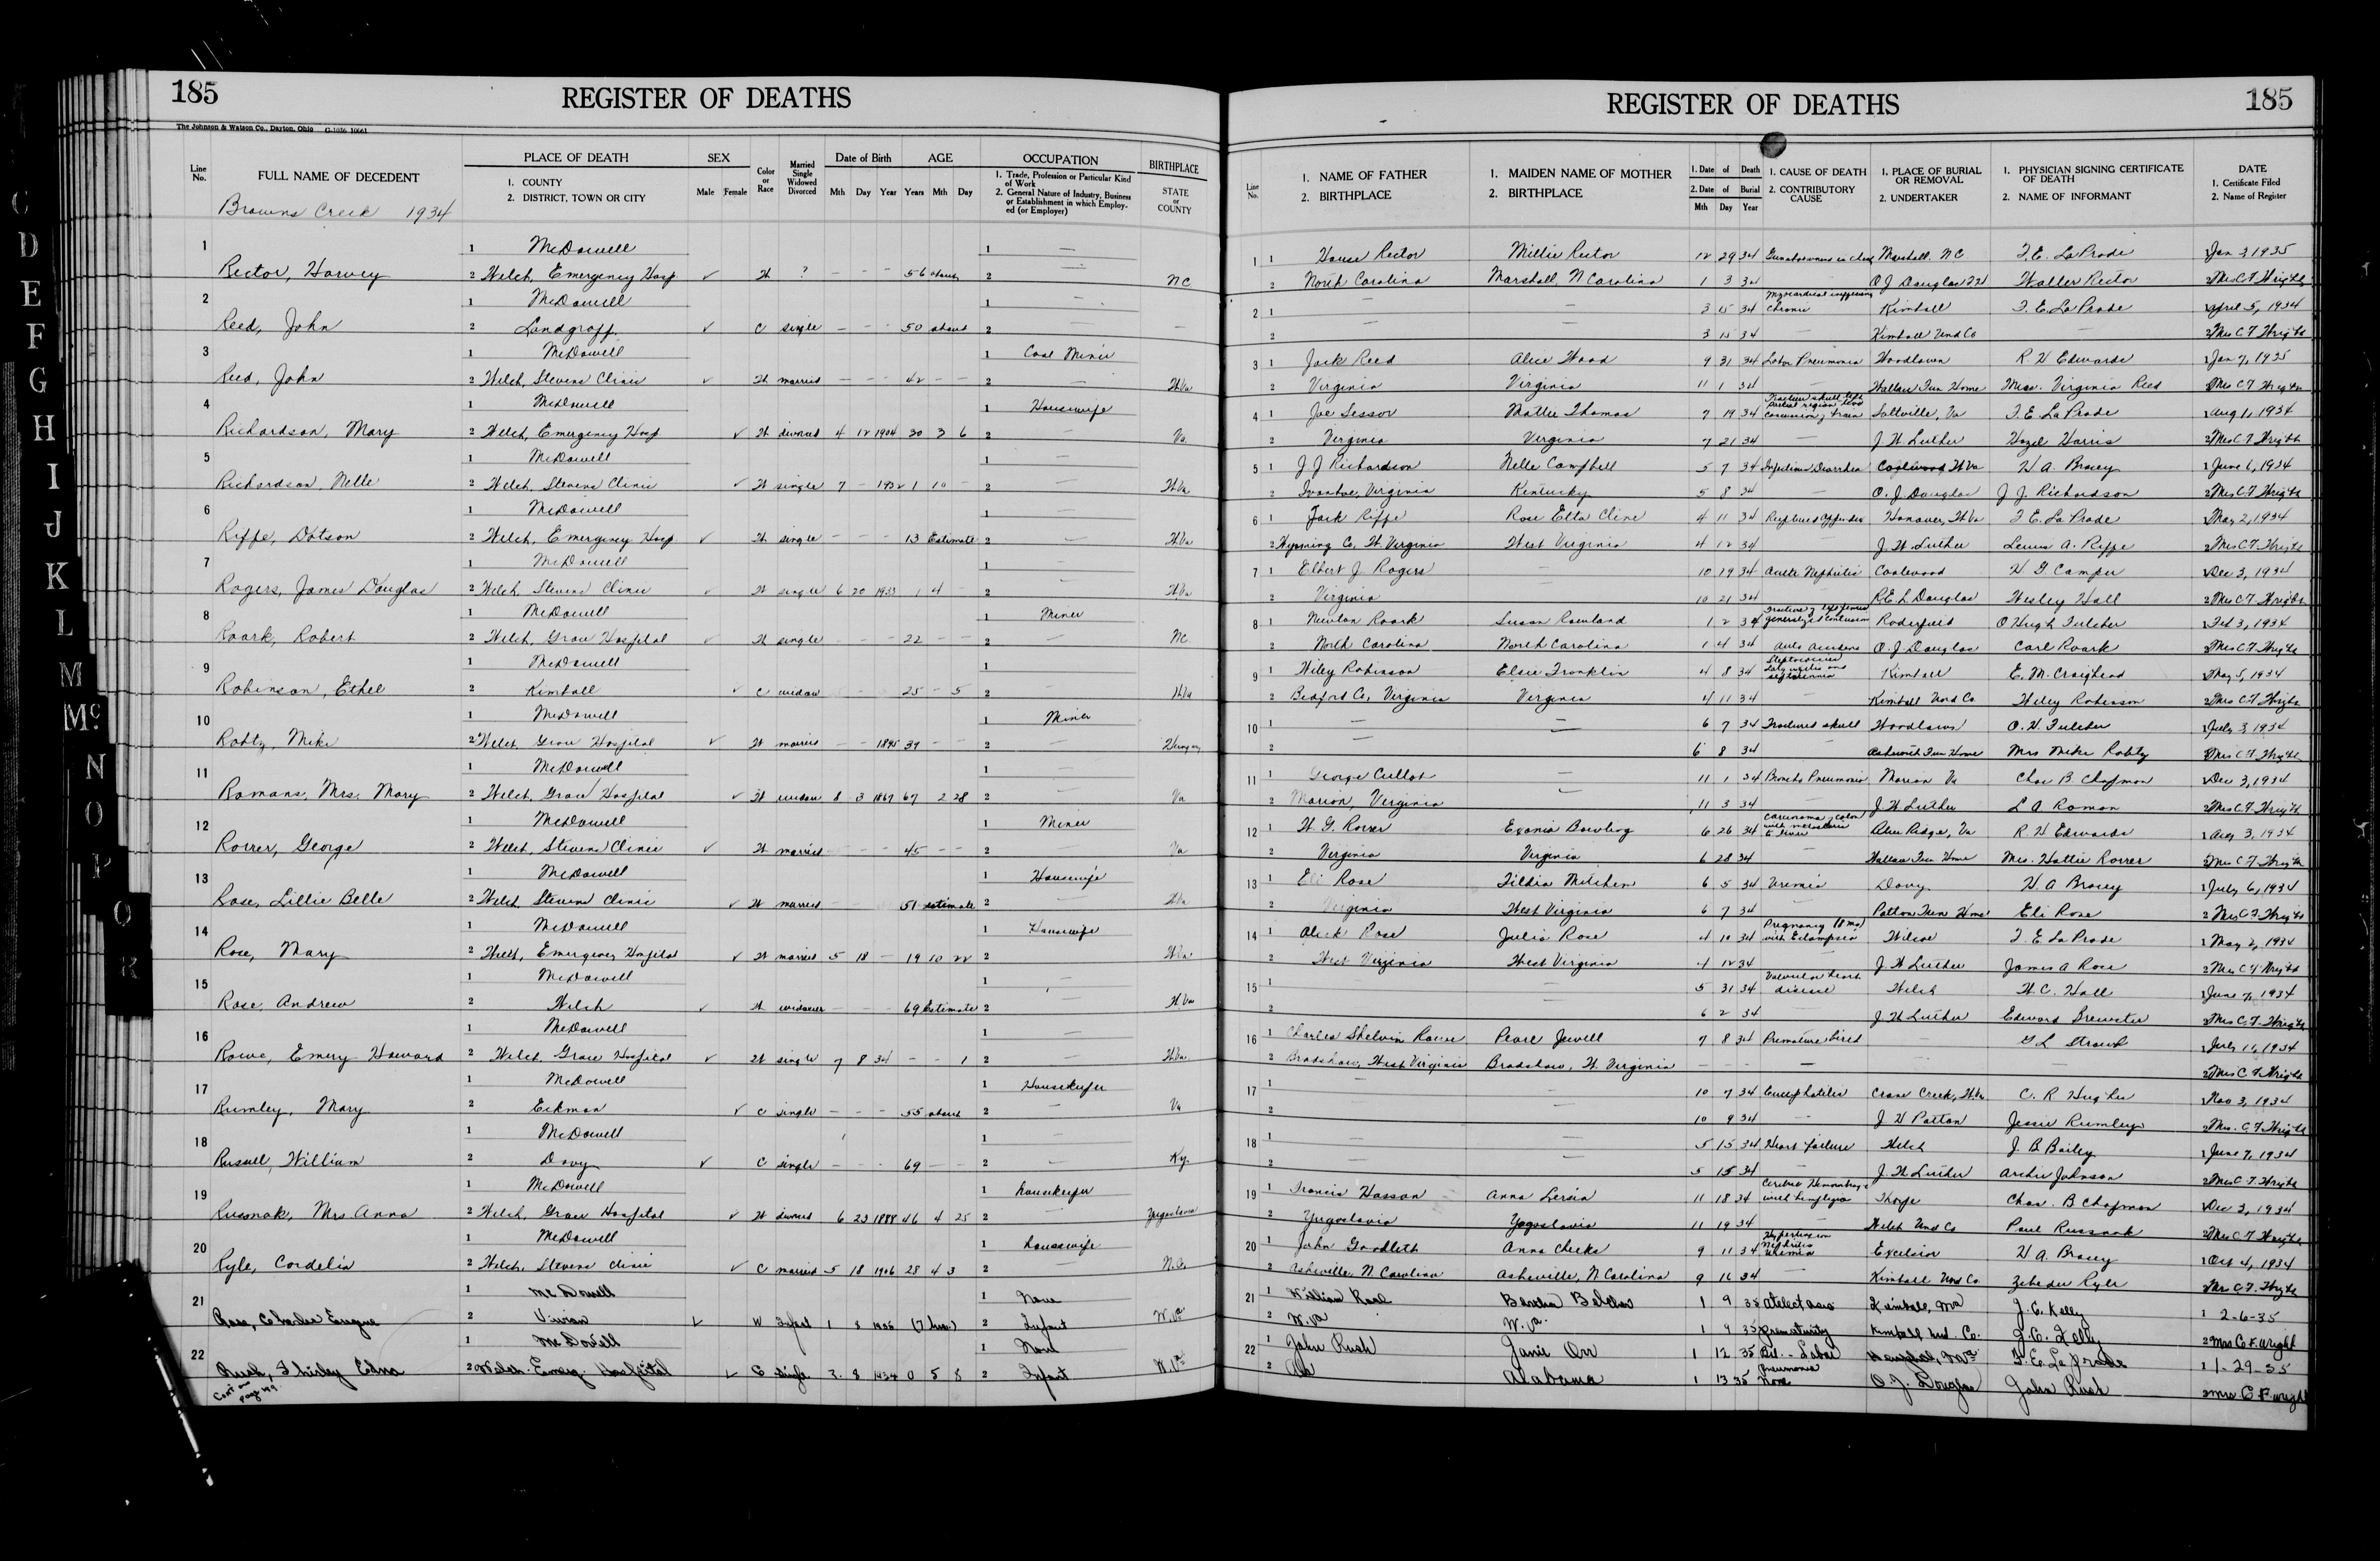 185
REGISTER OF DEATHS
The Johnson & Watson Co., Dayton, Ohio G-1036 10061
Line No. FULL NAME OF DECEDENT PLACE OF DEATH 1. COUNTY 2. DISTRICT, TOWN OR CITY SEX Male Female Color or Race Married Single Widowed Divorced Date of Birth Mth Day Year AGE Years Mth Day OCCUPATION 1. Trade, Profession or Particular Kind of Work 2. General Nature of Industry, Business or Establishment in which Employed (or Employer) BIRTHPLACE STATE or COUNTY
Browns Creek 1934
1 1 McDowell 1 —
Rector, Harvey 2 Welch, Emergency Hosp ✓ W ? – – – 56 about 2 — NC
2 1 McDowell 1 —
Reed, John 2 Landgraff ✓ C single – – – 50 about 2 — —
3 1 McDowell 1 Coal Miner
Reed, John 2 Welch, Stevens Clinic ✓ W married – – – 42 – – 2 — W Va
4 1 McDowell 1 Housewife
Richardson, Mary 2 Welch, Emergency Hosp ✓ W divorced 4 12 1904 30 3 6 2 — Va
5 1 McDowell 1 —
Richardson, Nelle 2 Welch, Stevens Clinic ✓ W single 7 – 1932 1 10 – 2 — W Va
6 1 McDowell 1 —
Riffe, Dotson 2 Welch, Emergency Hosp ✓ W single – – – 13 Estimate 2 — W Va
7 1 McDowell 1 —
Rogers, James Douglas 2 Welch, Stevens Clinic ✓ W single 6 20 1933 1 4 – 2 — W Va
8 1 McDowell 1 Miner
Roark, Robert 2 Welch, Grace Hospital ✓ W single – – – 22 – – 2 — NC
9 1 McDowell 1
Robinson, Ethel 2 Kimball ✓ C widow 25 – 5 2 — W Va
10 1 McDowell 1 Miner
Robtz, Mike 2 Welch, Grace Hospital ✓ W married – – 1895 39 – – 2 — Hungary
11 1 McDowell 1 —
Romans, Mrs. Mary 2 Welch, Grace Hospital ✓ W widow 8 3 1867 67 2 28 2 — Va
12 1 McDowell 1 Miner
Rorrer, George 2 Welch, Stevens Clinic ✓ W married – – – 45 – – 2 — Va
13 1 McDowell 1 Housewife
Rose, Lillie Belle 2 Welch, Stevens Clinic ✓ W married 51 estimate 2 — W Va
14 1 McDowell 1 Housewife
Rose, Mary 2 Welch, Emergency Hospital ✓ W married 5 18 – 19 10 22 2 W Va
15 1 McDowell 1
Rose, Andrew 2 Welch ✓ W widower – – – 69 Estimate 2 — W Va
16 1 McDowell 1 —
Rowe, Emery Howard 2 Welch, Grace Hospital ✓ W single 7 8 34 – – 1 2 — W Va
17 1 McDowell 1 Housekeeper
Rumley, Mary 2 Eckman ✓ C single – – – 55 about 2 — Va
18 1 McDowell 1 —
Russell, William 2 Davy ✓ C single – – – 69 – – 2 — Ky.
19 1 McDowell 1 housekeeper
Russnak, Mrs Anna 2 Welch, Grace Hospital ✓ W divorced 6 23 1888 46 4 25 2 — Yugoslavia
20 1 McDowell 1 housewife
Ryle, Cordelia 2 Welch, Stevens Clinic ✓ C married 5 18 1906 28 4 3 2 — N.C.
21 1 McDowell 1 None
Rose, Charles Eugene 2 Vivian ✓ W Infant 1 8 1935 2 Infant W.Va
22 1 McDowell 1 None
Rush, Shirley Edna 2 Welch. Emerg. Hospital ✓ C single 3. 8 1934 0 5 8 2 Infant W.Va
Cont on page
185
REGISTER OF DEATHS
Line No. 1. NAME OF FATHER 2. BIRTHPLACE 1. MAIDEN NAME OF MOTHER 2. BIRTHPLACE 1. Date of Death 2. Date of Burial Mth Day Year 1. CAUSE OF DEATH 2. CONTRIBUTORY CAUSE 1. PLACE OF BURIAL OR REMOVAL 2. UNDERTAKER 1. PHYSICIAN SIGNING CERTIFICATE OF DEATH 2. NAME OF INFORMANT DATE 1. Certificate Filed 2. Name of Register
1 1 House Rector Millie Rector 12 29 34 Marshall, NC T. E. LaPrade 1 Jan 3, 1935
2 North Carolina Marshall, N Carolina 1 3 34 O J Douglas Walter Rector 2 Mrs C F Wright
2 1 — — 3 15 34 Myocardical chronic Kimball T. E. LaPrade 1 April 5, 1934
2 — — 3 15 34 — Kimball Und Co — 2 Mrs C F Wright
3 1 Jack Reed Alice Wood 9 31 34 Lobar Pneumonia Woodlawn R H Edwards 1 Jan 7, 1935
2 Virginia Virginia 11 1 34 — Wallace Fun Home Mrs. Virginia Reed 2 Mrs C F Wright
4 1 Joe Sessor Mattie Thomas 7 19 34 Fracture skull left train Saltville, Va T. E. LaPrade 1 Aug 1, 1934
2 Virginia Virginia 7 21 34 — J W Luther Hazel Harris 2 Mrs C F Wright
5 1 J J Richardson Nelle Campbell 5 7 34 Infectious Diarrhea Coalwood W Va H A. Bracey 1 June 6, 1934
2 Ivanhoe, Virginia Kentucky 5 8 34 — O. J. Douglas J J. Richardson 2 Mrs C F Wright
6 1 Jack Riffe Rose Etta Cline 4 11 34 Ruptured appendix Hanover, W Va T E. LaPrade 1 May 2, 1934
2 Wyoming Co, W. Virginia West Virginia 4 12 34 J. W. Luther Lewis A. Riffe 2 Mrs C F Wright
7 1 Elbert J. Rogers — 10 19 34 Acute Nephritis Coalwood H G Camper 1 Dec 3, 1934
2 Virginia — 10 21 34 R E L Douglas Wesley Hall 2 Mrs C F Wright
8 1 Newton Roark Susan Rowland 1 2 34 Fracture of left femur generalized contusion Roderfield O Hugh Fulcher 1 Feb 3, 1934
2 North Carolina North Carolina 1 4 34 Auto Accident O. J. Douglas Carl Roark 2 Mrs C F Wright
9 1 Wiley Robinson Elsie Franklin 4 8 34 Streptococcus Laryngitis and septicemia Kimball E. M. Craighead 1 May 5, 1934
2 Bedford Co, Virginia Virginia 4 11 34 — Kimball Und Co Wiley Robinson 2 Mrs C F Wright
10 1 — — 6 7 34 Fractured skull Woodlawn O. H. Fulcher 1 July 3, 1934
2 6 8 34 — Ashworth Fun Home Mrs Mike Robtz 2 Mrs C F Wright
11 1 George Cullop — 11 1 34 Broncho Pneumonia Marion Va Chas B Chapman 1 Dec 3, 1934
2 Marion, Virginia 11 3 34 — J W Luther L A Roman 2 Mrs C F Wright
12 1 W. G. Rorrer Exonia Bowling 6 26 34 Carcinoma, Colon with to liver Blue Ridge, Va R H Edwards 1 Aug 3, 1934
2 Virginia Virginia 6 28 34 — Wallace Fun Home Mrs. Hattie Rorrer 2 Mrs C F Wright
13 1 Eli Rose Tildia Mitchem 6 5 34 Uremia Davy H A Bracey 1 July 6, 1934
2 Virginia West Virginia 6 7 34 — Patton Fun Home Eli Rose 2 Mrs C F Wright
14 1 Alick Rose Julia Rose 4 10 34 Pregnancy (8 mo) with Eclampsia Wilcoe T. E. LaPrade 1 May 2, 1934
2 West Virginia West Virginia 4 12 34 — J. W Luther James A Rose 2 Mrs C F Wright
15 1 — — 5 31 34 Valvular heart disease Welch W. C. Hall 1 June 7, 1934
2 — — 6 2 34 — J W Luther Edward Brewster 2 Mrs C. F. Wright
16 1 Charles Shelvin Rowe Pearl Jewell 7 8 34 Premature bird — G L Straub 1 July 11, 1934
2 Bradshaw, West Virginia Bradshaw, W. Virginia – – – — — — 2 Mrs C F Wright
17 1 — — 10 7 34 Encephalitis Crane Creek, W Va C. R Hughes 1 Nov 3, 1934
2 — 10 9 34 — J W Patton Jessie Rumley 2 Mrs. C. F. Wright
18 1 — — 5 15 34 Heart failure Welch J. B Bailey 1 June 7, 1934
2 — — 5 15 34 — J. W Luther Archie Johnson 2 Mrs C. F. Wright
19 1 Francis Hasson Anna Lersin 11 18 34 Cerebral Hemorrhage with hemiplegia Thorpe Chas. B Chapman 1 Dec 3, 1934
2 Yugoslavia Yogoslavia 11 19 34 — Welch Und Co Paul Russnak 2 Mrs C F Wright
20 1 John Goodleth Anna Cheeks 9 11 34 Hypertension Nephritis Uremia Excelsior H A. Bracey 1 Oct 4, 1934
2 Asheville, N Carolina Asheville, N Carolina 9 16 34 — Kimball Und Co. Zebedee Ryle Mrs C. F. Wright
21 1 William Rose Bertha Belcher 1 9 35 Atelectasis Kimball, J. C. Kelly 1 2-6-35
2 W.Va W.Va. 1 9 35 Prematurity Kimball Und. Co. J. C. Kelly 2 Mrs C. F. Wright
22 1 John Rush Janie Orr 1 12 35 Bil. – Lobar Pneumonia T. E. LaPrade 1 1-29-35
2 Ala Alabama 1 13 35 None O. J. Douglas John Rush 2 Mrs C F. Wright
C
D
E
F
G
H
I
J
K
L
M
Mc
N
O
P
Q
R